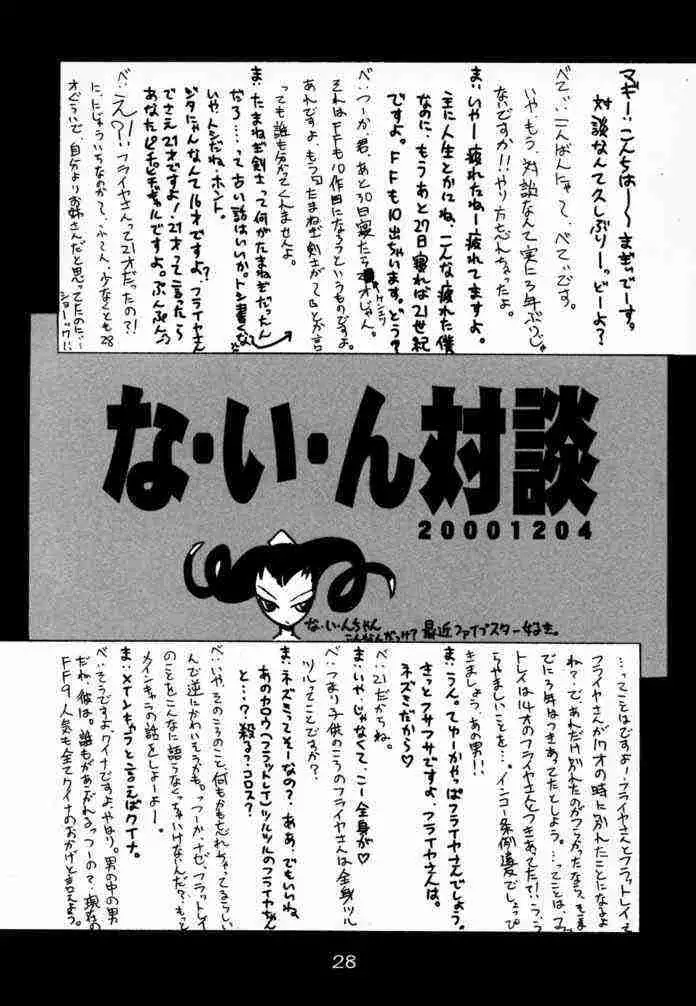 マギー:こんちはー〜まぎぃでーす。
対談なんて久しぶりーっどーよ?
べてぃ:こんばんにゃて、べてぃです。
いや、もう、対談なんて実に3年ぶりじゃ
ないですか!!やり方忘れちゃったよ。
ま:いやー疲れたねー疲れてますよ。
主に人生とかにね、こんな疲れた僕
なのに、もうあと27日寝れば21世紀
ですよ。FFも10出ちゃいます。どう?
べ:つーか、君、あと30日寝たら
それはFFも10作目になろうというものですよ。
あれですよ、もう
っても誰も分かってくれませんよ。
ま:たまねぎ剣士って何がたまねぎだったん
だろ…って古い話はいいか。トシ書くな
いや、トシだね、ホント。
ジタにゃんなんて16才ですよ?フライヤさん
でさえ21才ですよ!21才って言ったら
あなたピチピチギャルですよ。ぷんぷん。
べ:え?!フライヤさんって21才だったの?!
に、にじょういちなのかて、ふーん、少なくとも28
才ぐらいで、自分よりお姉さんだと思ってたのに…
ショーック!!
な・い・ん対談
20001204
な・い・んちゃん
こんなんだっけ?最近ファイブスター好き。
…ってことはですよ!フライヤさんとフラットレイで
フライヤさんが17才の時に別れたことになるよ
ね?で、あれだけ別れたのがつらかったなら、ま
でに3年はつきあってたとしよう。…ってことは、フ
トレイは14才のフライヤさんとつきあってた?!こう
らやましいことを…。インコー条例違反でしょっぴ
きましょう、あの男!!
ま:うん。てゆーかやっぱフライヤさんでしょう。
きっとフサフサですよ、フライヤさんは。
ネズミだから♡
べ:21だからね。
ま:いや、じゃなくて、こー全身が♡
べ:つまり子供のころのフライヤさんは全身ツル
ツルってことですか?
ま:ネズミってそーなの?ああ、でもいいね、
あのカロウ(フラットレイ)ツルツルのフライヤちゃん
と…?殺る?コロス?
べ:いや、そのころのこと、何もかも忘れちゃってるらしい
んで逆にかわいそうかも。っつーか、ナゼ、フラットレイ
のことをこんなに語らなくちゃいけないんだ?もっと
メインキャラの話をしよーよー。
ま:メインキャラと言えばクイナ。
べ:そうですよ、クイナですよ、やはり。男の中の男
だね、彼は。誰もがあこがれるっつーの?現在の
FF9人気も全てクイナのおかげと言えよう。
28